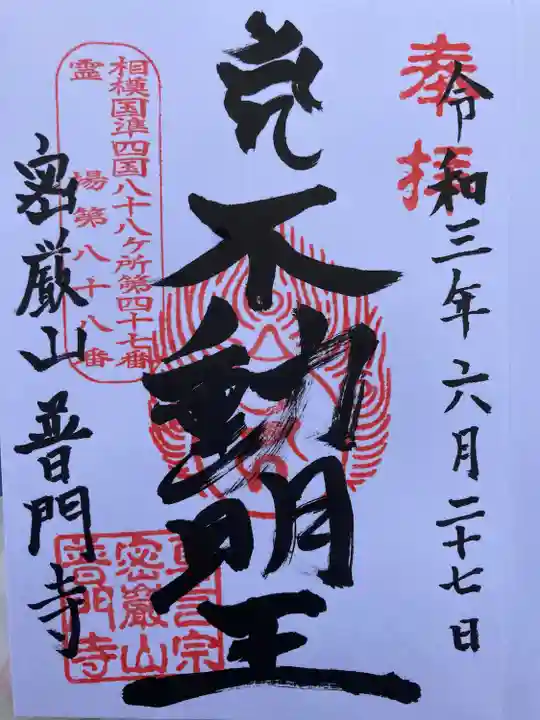 奉拝
令和三年六月二十七日
不動明王
相模国準四国八十八ヶ所第四十七番
霊場第八十八番
密厳山普門寺
真言宗
密巖山
普門寺